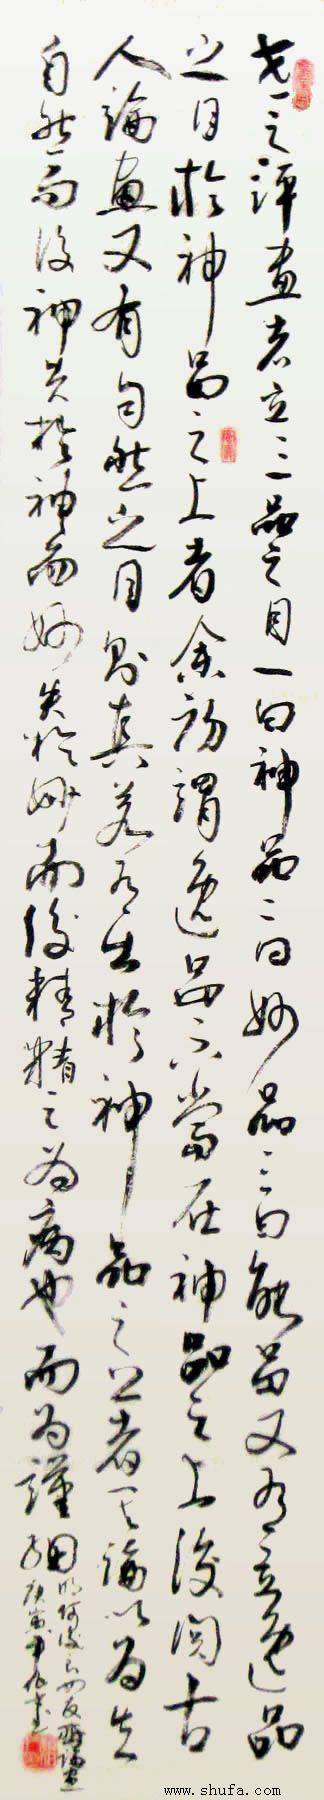 世之評畫者立三品之目一曰神品二曰妙品三曰能品又有立逸品
之目於神品之上者余初謂逸品不當在神品之上後閱古
人論畫又有自然之目則真若有出於神品之上者其論以為失
自然而後神失於神而妙失於妙而後精精之為病也而為謹細
明何良俊四友齋論畫
庚寅
www.shufa.com